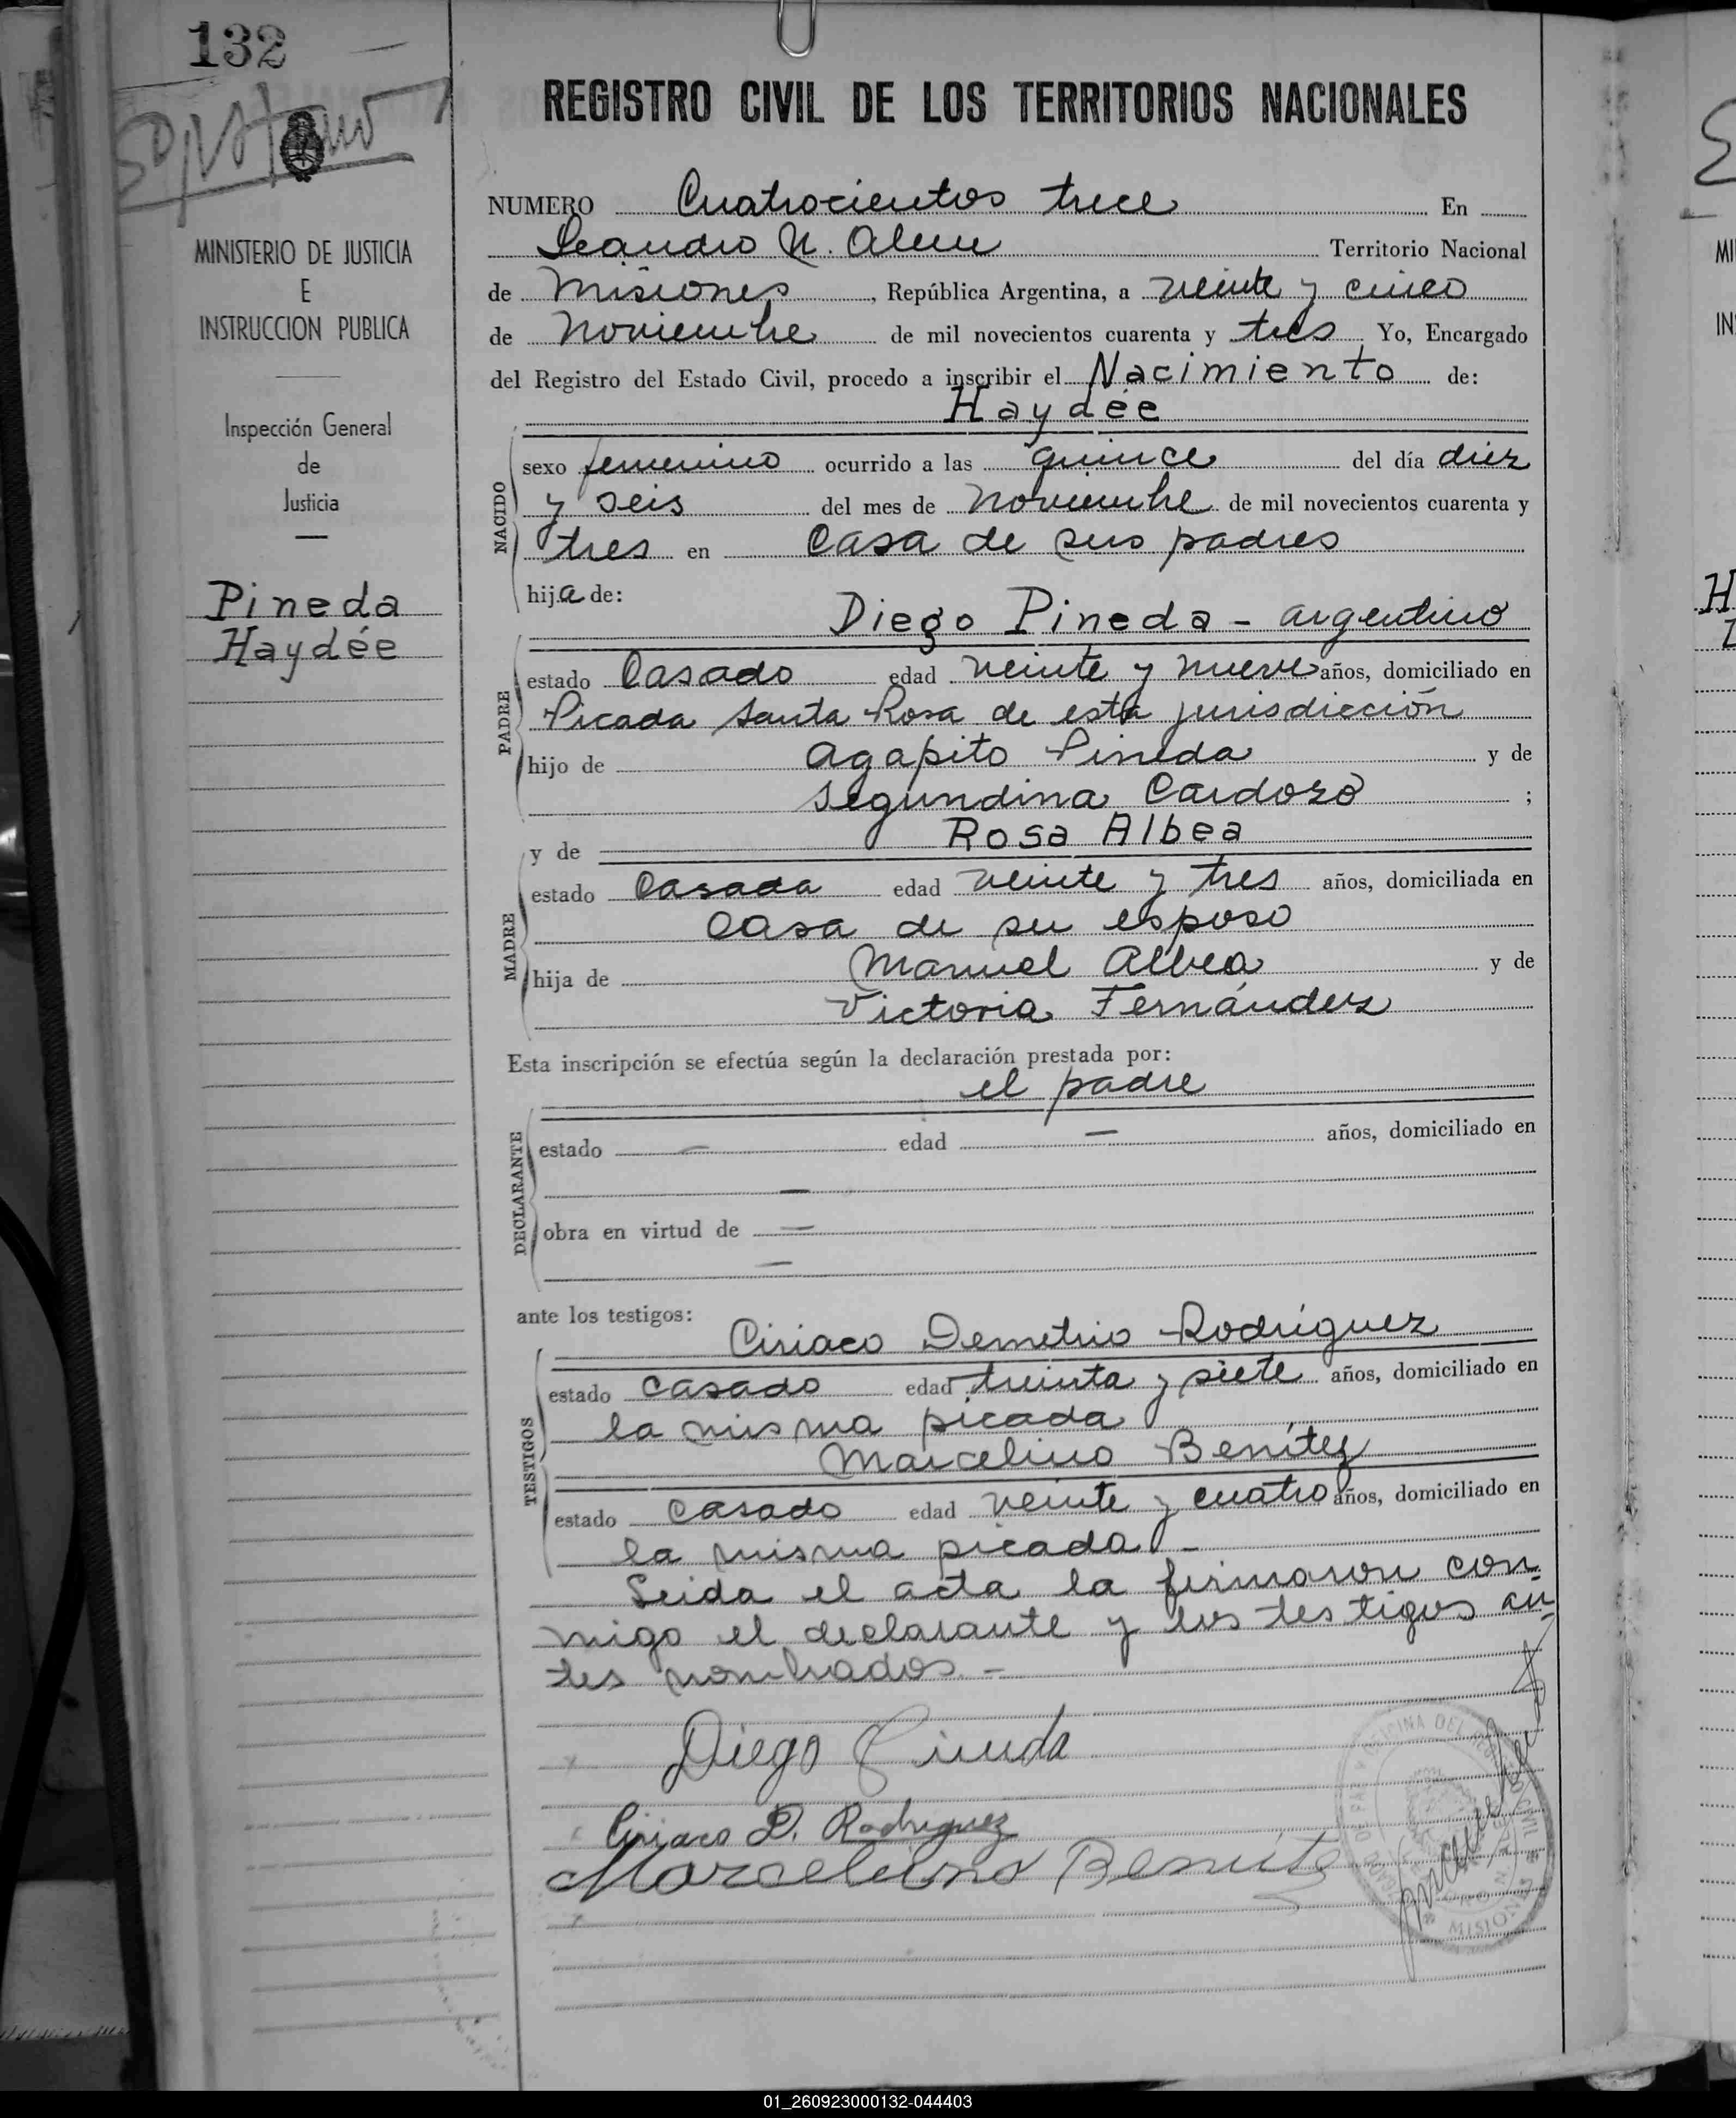 132
REGISTRO CIVIL DE LOS TERRITORIOS NACIONALES
MINISTERIO DE JUSTICIA
E
INSTRUCCION PUBLICA
Inspección General
de
Justicia
Pineda
Haydée
NUMERO Cuatrocientos trece En
Leandro N. Alem Territorio Nacional
de Misiones, República Argentina, a veinte y cinco
de Noviembre de mil novecientos cuarenta y tres Yo, Encargado
del Registro del Estado Civil, procedo a inscribir el Nacimiento de:
Haydée
NACIDO
sexo femenino ocurrido a las quince del día diez
y seis del mes de Noviembre de mil novecientos cuarenta y
tres en Casa de sus padres
hija de:
Diego Pineda - argentino
PADRE
estado Casado edad veinte y nueve años, domiciliado en
Picada Santa Rosa de esta jurisdicción
hijo de Agapito Pineda y de
Segundina Cardozo ;
y de Rosa Albea
MADRE
estado Casada edad veinte y tres años, domiciliada en
Casa de su esposo
hija de Manuel Albea y de
Victoria Fernández
Esta inscripción se efectúa según la declaración prestada por:
el padre
DECLARANTE
estado — edad — años, domiciliado en
—
obra en virtud de —
—
ante los testigos:
Ciriaco Demetrio Rodríguez
TESTIGOS
estado casado edad treinta y siete años, domiciliado en
la misma picada
Marcelino Benítez
estado casado edad veinte y cuatro años, domiciliado en
la misma picada. -
Leida el acta la firmaron con-
migo el declarante y los testigos an-
tes nombrados. -
Diego Pineda
Ciriaco D. Rodriguez
Marcelino Benitez
MISIONES
01_260923000132-044403